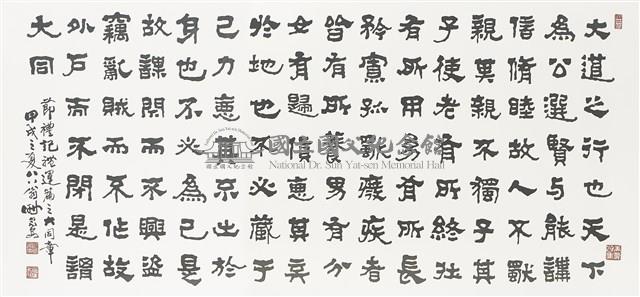 大道之行也天下
為公選賢與能講
信脩睦故人不獨
親其親不獨子其
子使老有所終壯
有所用幼有所長
矜寡孤獨廢疾者
皆有所養男有分
女有歸貨惡其棄
於地也不必藏于
己力惡其不出於
身也不必為己是
故謀閉而不興盜
竊亂賊而不作故
外戶而不閉是謂
大同
節禮記禮運篇之大同章
甲戌之夏八八翁
國立國父紀念館
National Dr. Sun Yat-sen Memorial Hall